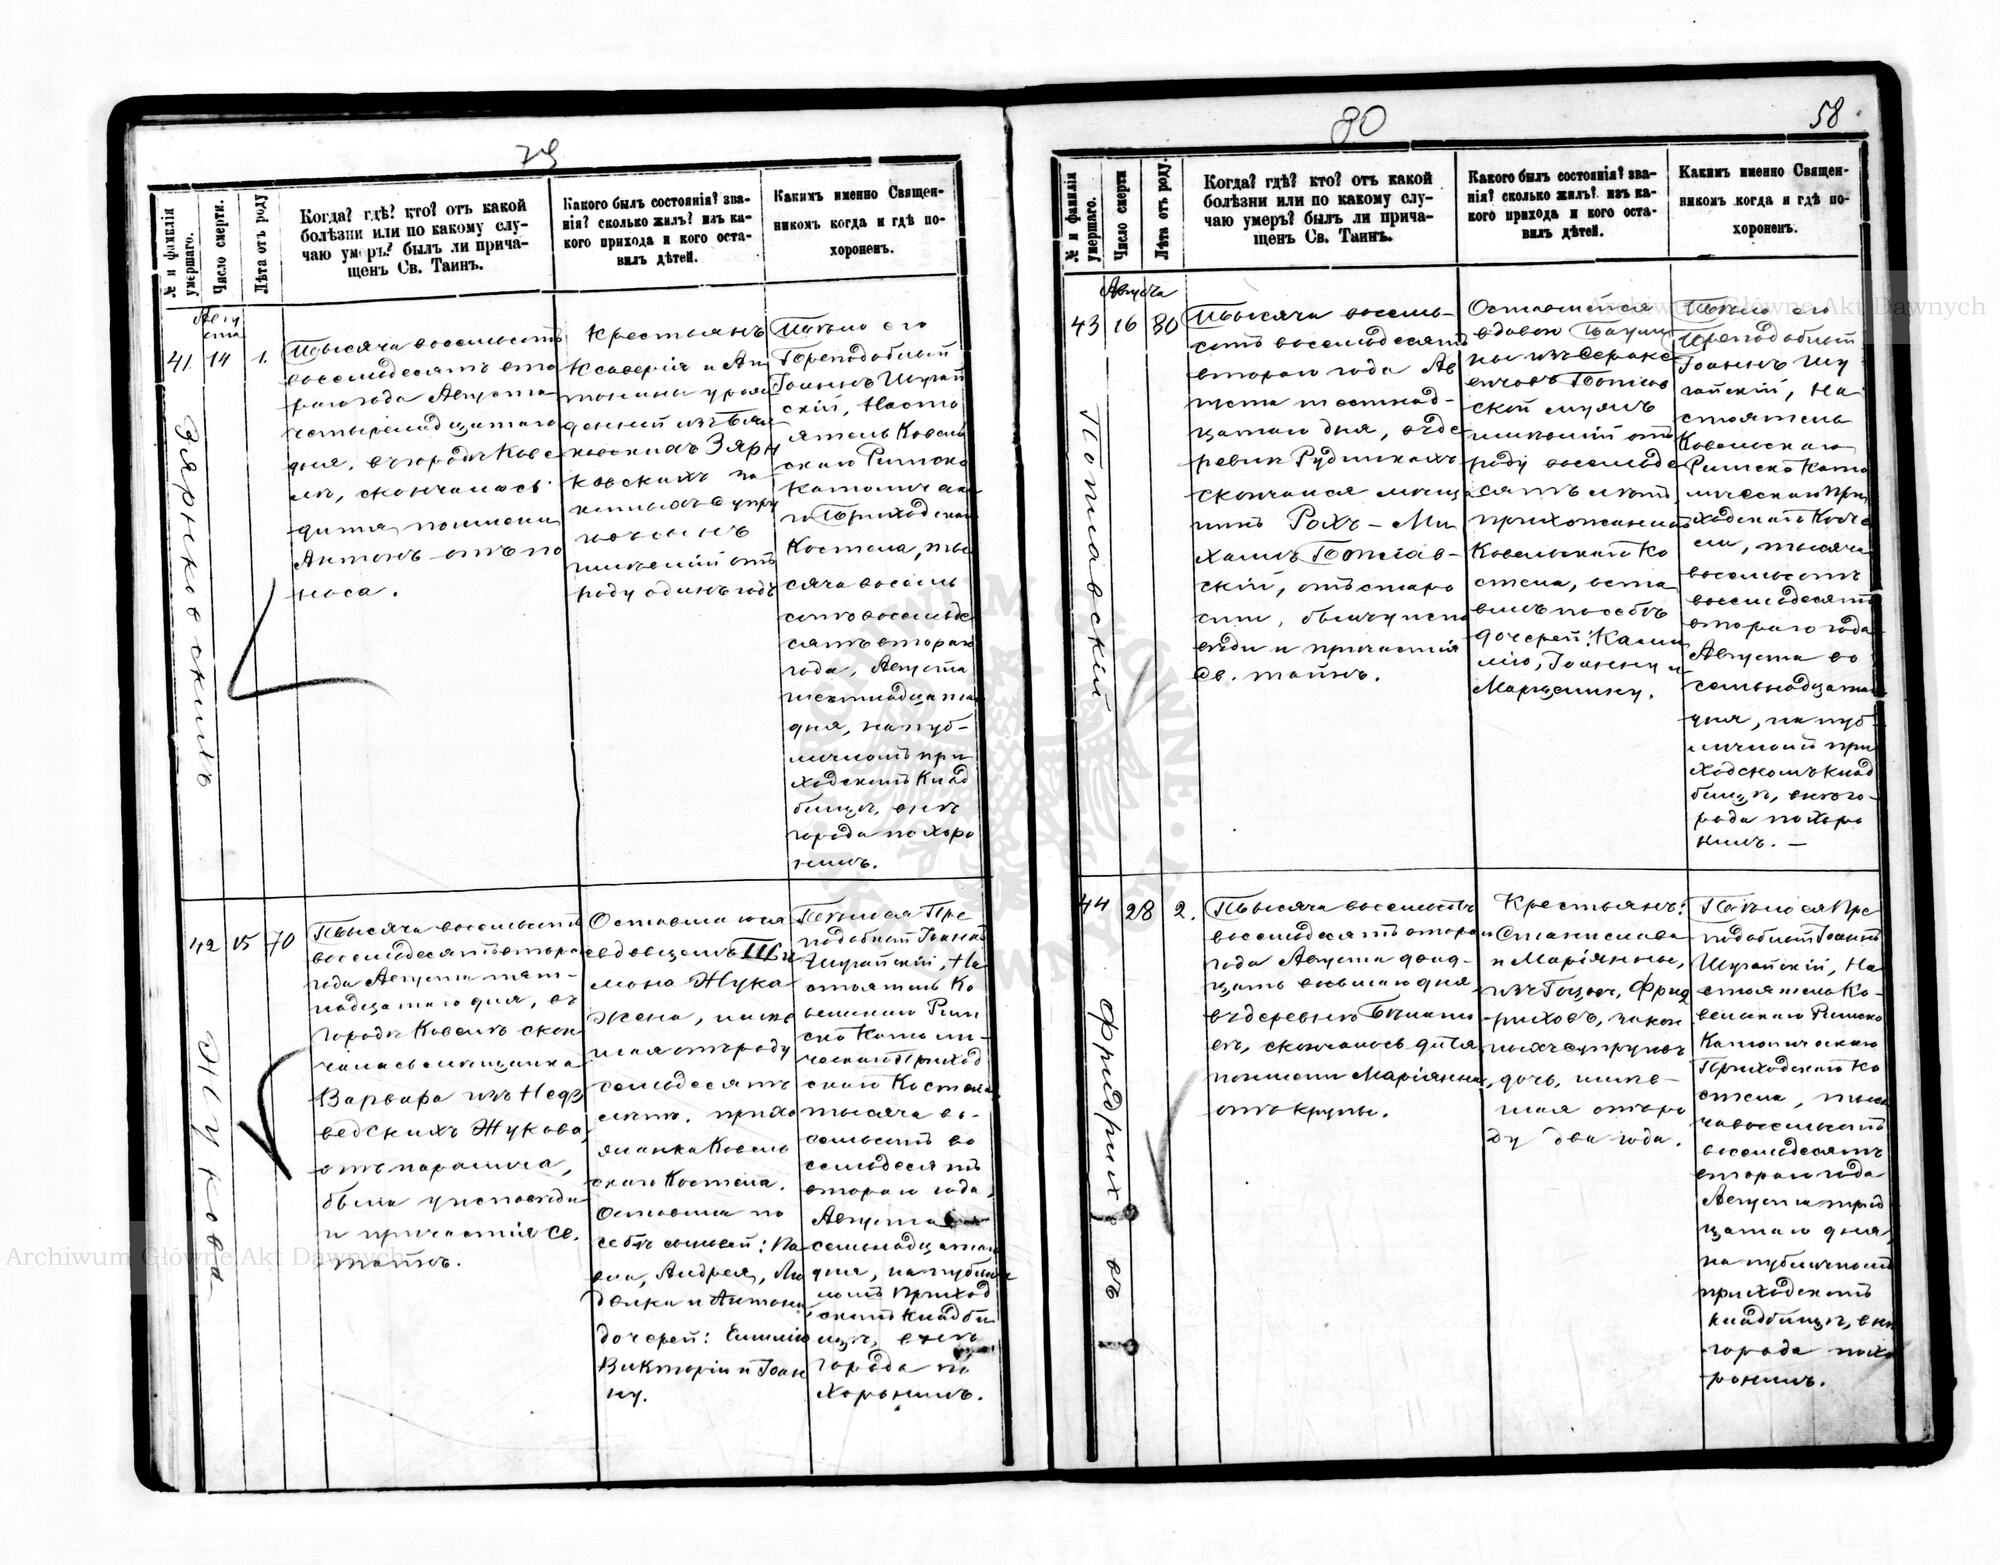 79
№ и фамилія умершаго.
Число смерти.
Лѣта отъ роду
Когда? гдѣ? кто? отъ какой
болѣзни или по какому слу-
чаю умеръ? былъ ли прича-
щенъ Св. Таинъ.
Какого былъ состоянія? зва-
нія? сколько жилъ? изъ ка-
кого прихода и кого оста-
вилъ дѣтей.
Какимъ именно Священ-
никомъ когда и гдѣ по-
хороненъ.
Авгу
ста
41
14
1.
Тысяча восемьсотъ
восемьдесятъ вто
раго года Августа
четырнадцатаго
дня, въ городѣ Кове
лѣ, скончалось
дитя, по имени
Антонъ отъ по
носа.
Крестьянъ
Ксаверія и Ан
тонины урож
денной изъ
Зярн
ковскихъ за
конныхъ супру
говъ сынъ
жившій отъ
роду одинъ годъ
Тѣло его
Преподобный
Іоаннъ Шугай
скій, Насто
ятель Ковель
скаго Римско
Католическа
го Приходскаго
Костела, ты
сяча восемь
сотъ восемьде
сятъ втораго
года, Августа
шестнадцатаго
дня, на пуб-
личномъ при
ходскомъ клад
бищѣ, внѣ
города похоро
нилъ.
Зярнковскихъ
42
15
70
Тысяча восемьсотъ
восемьдесятъ втора
года Августа пят-
надцатаго дня, въ
городѣ Ковелѣ скон
чалась мѣщанка
Варвара изъ Недз
ведскихъ Жукова,
отъ паралича,
была у исповѣди
и причастія Св.
тайнъ.
Оставшагося
вдовцемъ
мона Жука
жена, жив
шая отъ роду
семьдесятъ
лѣтъ. прихо
жанка Ковель
скаго Костела.
Оставила по
себѣ сыновей: Па
вла, Андрея, Лю
двика и Антона,
дочерей: Емилію
Викторію и Іоан
ну.
Тѣло ея Пре
подобный Іоаннъ
Шугайскій, На
стоятель Ко
вельскаго Рим
ско Католи-
ческаго Приход
скаго Костела
тысяча во-
семьсотъ во
семьдесятъ
втораго года,
Августа
семнадцатаго
дня, на публич
номъ приход
скомъ кладби
щѣ, внѣ
города по
хоронилъ.
Жукова
80
58
№ и фамилія умершаго.
Число смерти
Лѣта отъ роду.
Когда? гдѣ? кто? отъ какой
болѣзни или по какому слу-
чаю умеръ? былъ ли прича-
щенъ Св. Таинъ.
Какого былъ состоянія? зва-
нія? сколько жилъ? изъ ка-
кого прихода и кого оста-
вилъ дѣтей.
Какимъ именно Священ-
никомъ когда и гдѣ по-
хороненъ.
Августа
43
16
80
Тысяча восемь-
сотъ восемьдесятъ
втораго года Ав
густа шестнад-
цатаго дня, въ де
ревни Рудникахъ
скончался мѣща
нинъ Рохъ-Ми
хаилъ
скій, отъ старо
сти, былъ у испо
вѣди и причастія
Св. тайнъ.
Оставшейся
вдовой Паули
ны изъ
ской мужъ
жившій отъ
роду восемьде
сятъ лѣтъ
прихожанинъ
Ковельскаго Ко
стела, оста
вилъ по себѣ
дочерей: Ками
лію, Іоанну и
Марцелину.
Тѣло его
Преподобный
Іоаннъ Шу
гайскій, На
стоятель
Ковельскаго
Римско Като
лическаго При
ходскаго Косте
ла, тысяча
восемьсотъ
восемьдесятъ
втораго года
Августа во
семнадцатаго
дня, на пуб-
личномъ при
ходскомъ клад
бищѣ, внѣ го-
рода похоро
нилъ. —
44
28
2.
Тысяча восемьсотъ
восемьдесятъ втора
года Августа двад-
цать восьмаго дня
въ деревнѣ
скончалось дитя
по имени Маріянна,
отъ крупы.
Крестьянъ:
Станислава
и Маріянны,
изъ Фрид
риховъ, закон
ныхъ супруговъ
дочь, жив-
шая отъ ро
ду два года.
Тѣло ея Пре
подобный Іоаннъ
Шугайскій, На
стоятель Ко-
вельскаго Римско
Католическаго
Приходскаго Ко
стела, тыся
ча восемьсотъ
восемьдесятъ
втораго года
Августа трид
цатаго дня,
на публичномъ
приходскомъ
кладбищѣ, внѣ
города похо
ронилъ.
Фридриховъ
Archiwum Główne Akt Dawnych
Archiwum Główne Akt Dawnych